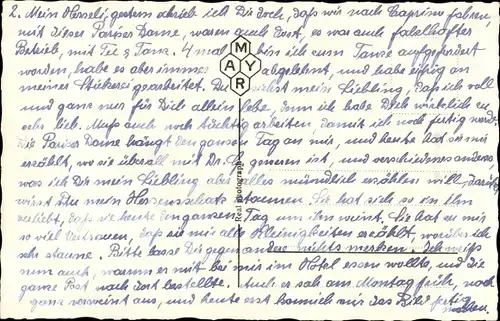 2. Mein Herzeli, gestern schrieb ich Dir doch, daß wir nach Caprino fahren,
mit dieser Pariser Dame, waren auch dort, es war auch fabelhafter
Betrieb, mit Tee & Tanz. 4 mal bin ich zum Tanze aufgefordert
worden, habe es aber immer abgelehnt, und habe eifrig an
meiner Stickerei gearbeitet. Du siehst mein Liebling, daß ich voll
und ganz nur für Dich allein lebe, denn ich habe Dich wirklich zu
sehr lieb. Muß auch noch tüchtig arbeiten, damit ich noch fertig werde.
Die Pariser Dame hängt den ganzen Tag an mir, und heute hat sie mir
erzählt, wo sie überall mit Dr. gewesen ist, und verschiedenes anderes
was ich Dir mein Liebling aber alles mündlich erzählen will, darüber
wirst Du mein Herzensschatz staunen. Sie hat sich so in ihn
verliebt, daß sie heute den ganzen Tag um ihn weint. Sie hat zu mir
so viel Vertrauen, daß sie mir alle Kleinigkeiten erzählt, worüber ich
sehr staune. Bitte lasse Dir gegen andere nichts merken. Ich weiß
nun auch, warum er mit bei mir im Hotel essen wollte, und die
ganze Post nach dort bestellte. Auch er sah am Montag früh, noch
ganz verweint aus, und heute erst konnte ich mir das Bild fertig
machen.
MAYR